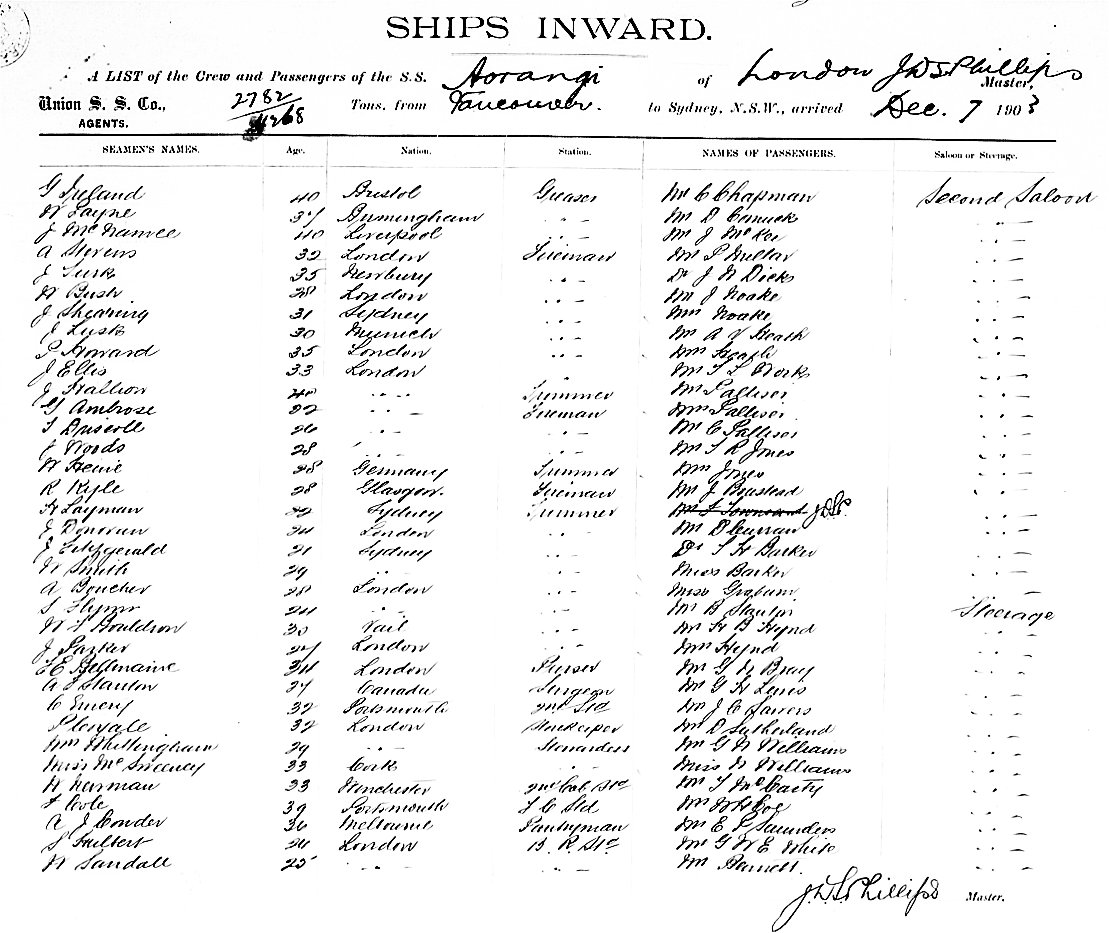 SHIPS INWARD.
A LIST of the Crew and Passengers of the S.S. Aorangi of London J.D.S. Phillips Master,
Union S. S. Co., 2782 Tons, from Vancouver. to Sydney, N.S.W., arrived Dec. 7 1903
AGENTS. 4268
SEAMEN'S NAMES. Age. Nation. Station. NAMES OF PASSENGERS. Saloon or Steerage.
G Ireland 40 Bristol Greaser Mr C Chapman Second Saloon
W Payne 37 Birmingham " Mr D Cormack "
J McNamee 40 Liverpool " Mr J McKee "
A Stevens 32 London Fireman Mr P Millar "
J Turk 35 Newbury " Dr J N Dick "
W Bush 28 London " Mr J Noake "
J Shearing 31 Sydney " Mrs Noake "
J Lusk 30 Munich " Mr A V Heath "
P Howard 35 London " Mrs Heath "
J Ellis 33 London " Mr T L Work "
J 40 " Trimmer Mr Palliser "
G Ambrose 22 " Fireman Mrs Palliser "
T Driscoll 26 " " Mr C Palliser "
J Woods 28 " " Mr T R Jones "
W 28 Germany Trimmer Mrs Jones "
R Kyle 28 Glasgow. Fireman Mr J Boustead "
H Layman 22 Sydney Trimmer Mr Townsend J.D.S.P. "
J Donovan 24 London " Mr D Curran "
J Fitzgerald 21 Sydney " Dr T H Barker "
W Smith 29 " " Miss Barker "
A Boucher 28 London " Miss Graham "
S Flynn 24 " " Mr B Stanton Steerage
W J Bouldron 30 " Mr H B Hynd "
J Parker 27 London " Mrs Hynd "
E E Bellmaine 34 London Purser Mr G N Bray "
A S Stanton 27 Canada Surgeon Mr G H Lewis "
C Emery 32 Portsmouth 2nd Std Mr J C Sawers "
P 32 London Storekeeper Mr D Sutherland "
Mrs Whillingham 29 " Stewardess Mr G N Williams "
Miss McSweeney 33 Cork " Miss N Williams "
W Newman 33 Winchester 2nd Cab Std Mr T McCarty "
F Cole 39 Portsmouth F C Std Mr W H Coe "
A J Conder 36 Melbourne Pantryman Mr E P Saunders "
S Hulbert 24 London B. R. Std Mr G W E White "
W Sandall 25 " " Mr Barnett "
J.D.S. Phillips Master.